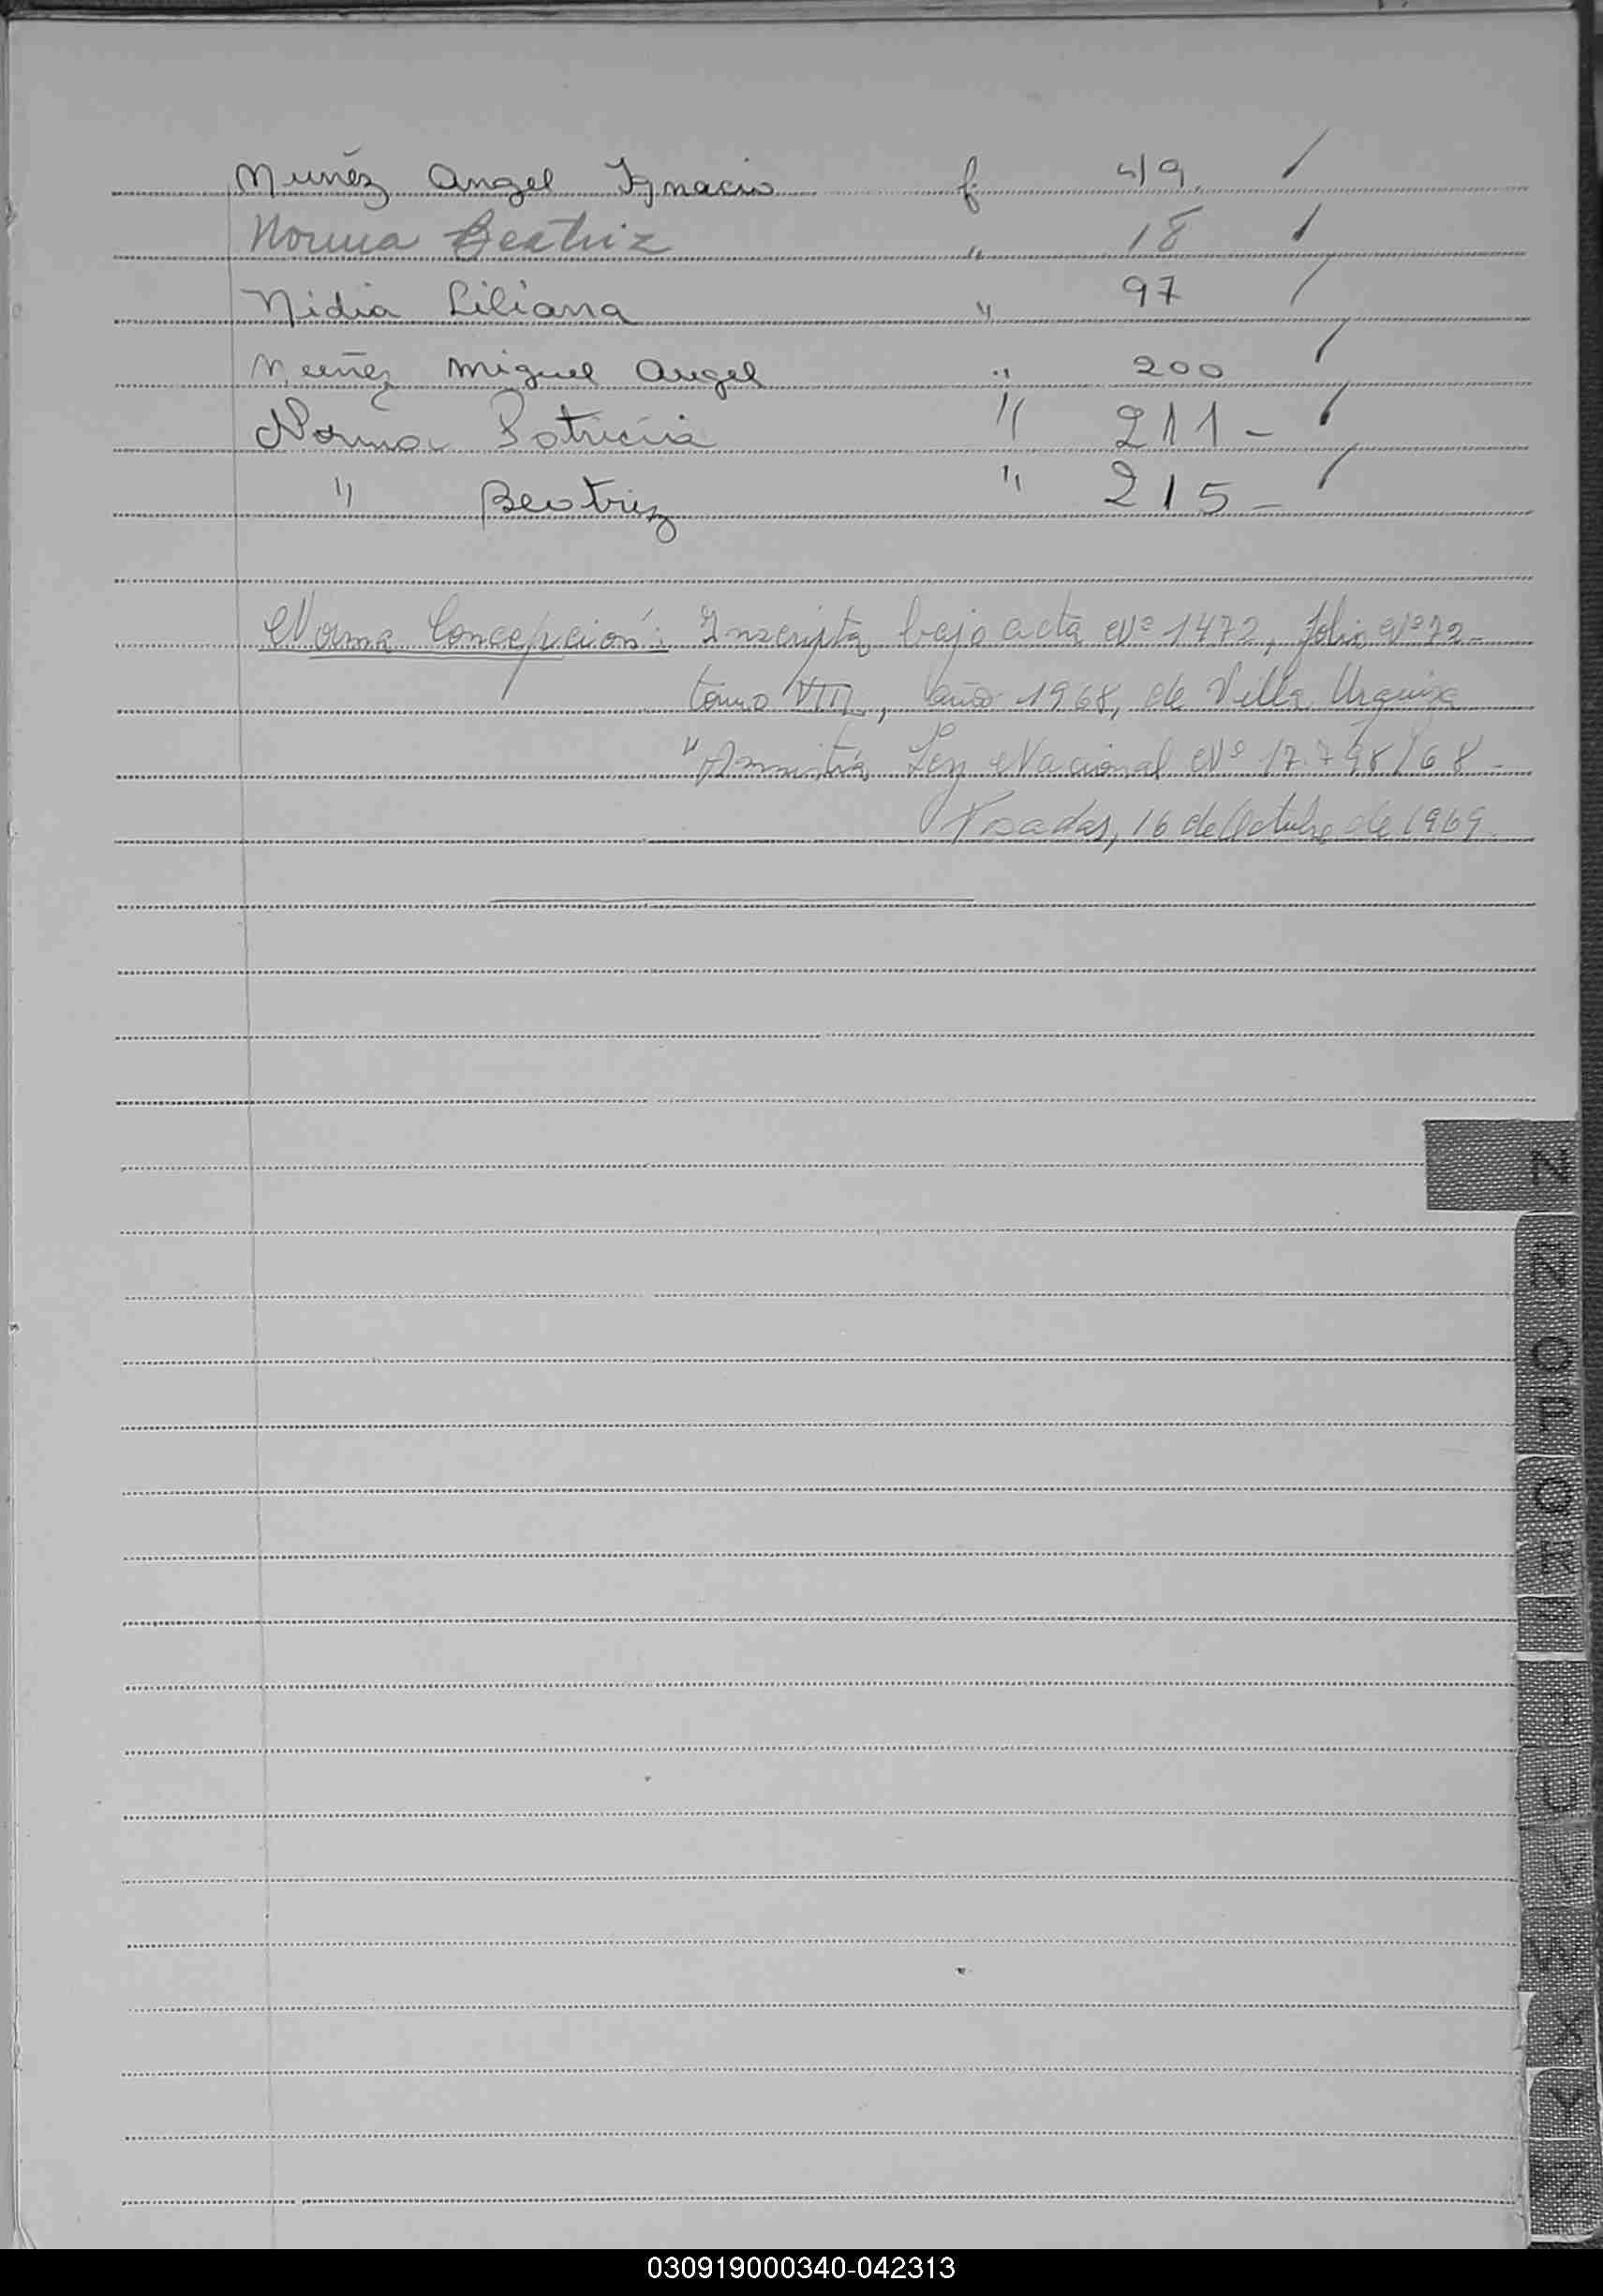 Nuñez Angel Ignacio f. 49. /
Norma Beatriz " 18 /
Nidia Liliana " 97 /
Nuñez Miguel Angel " 200 /
Norma Patricia " 211 - /
" Beatriz " 215 - /
Norma Concepción: Inscripta bajo acta Nº 1472, folio Nº 72 -
tomo VIII, año 1968, de Villa Urquiza
"Amnistía Ley Nacional Nº 17.798/68 -
Posadas, 16 de Octubre de 1969.
N
Ñ
O
P
Q
R
S
T
U
V
W
X
Y
Z
030919000340-042313